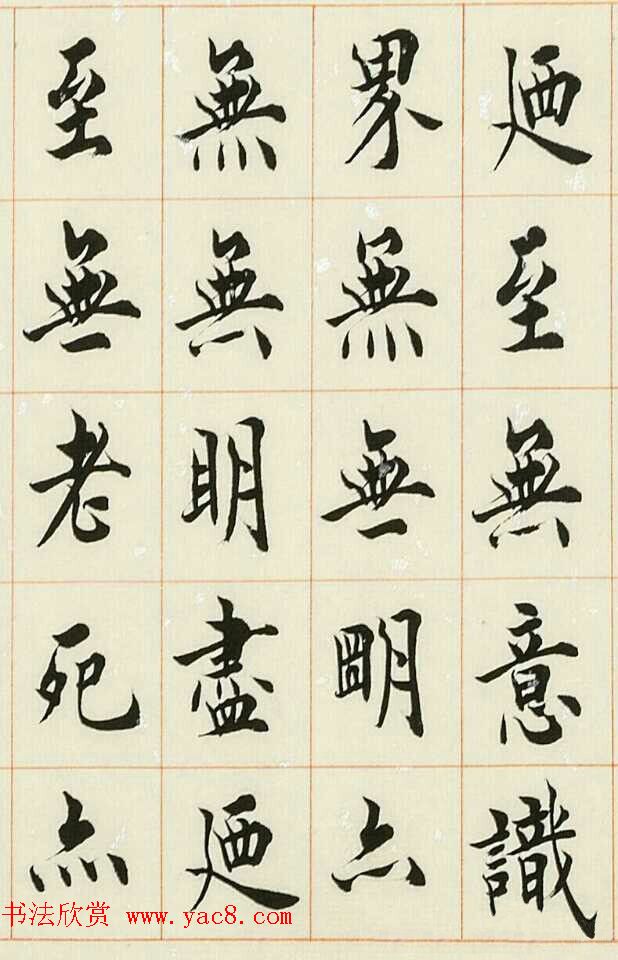 廼至無意識
界無無明亦
無無明盡廼
至無老死亦
书法欣赏 www.yac8.com